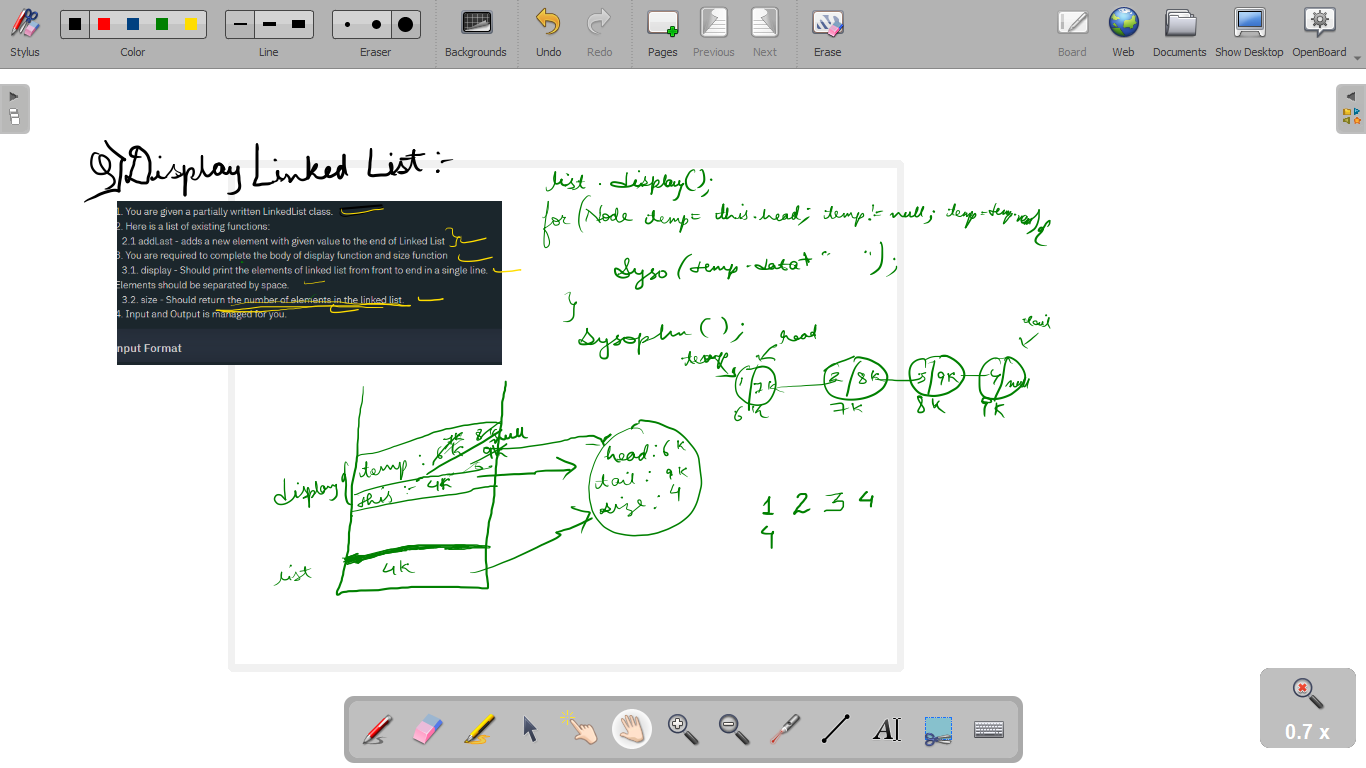 Stylus
Color
Line
Eraser
Backgrounds
Undo
Redo
Pages
Previous
Next
Erase
Board
Web
Documents
Show Desktop
OpenBoard
Q) Display Linked List :-
1. You are given a partially written LinkedList class.
2. Here is a list of existing functions:
2.1 addLast - adds a new element with given value to the end of Linked List
3. You are required to complete the body of display function and size function
3.1. display - Should print the elements of linked list from front to end in a single line.
Elements should be separated by space.
3.2. size - Should return the number of elements in the linked list.
4. Input and Output is managed for you.
nput Format
list . display();
for (Node temp = this.head; temp != null; temp = temp.next){
Syso (temp.data + " ");
}
Sysopln ();
temp
head
tail
1 7K
2 8K
3 9K
4 null
6K
7K
8K
9K
display {
temp : 6K 7K 8K 9K null
this :- 4K
list
4K
head : 6K
tail : 9K
size : 4
1 2 3 4
4
0.7 x